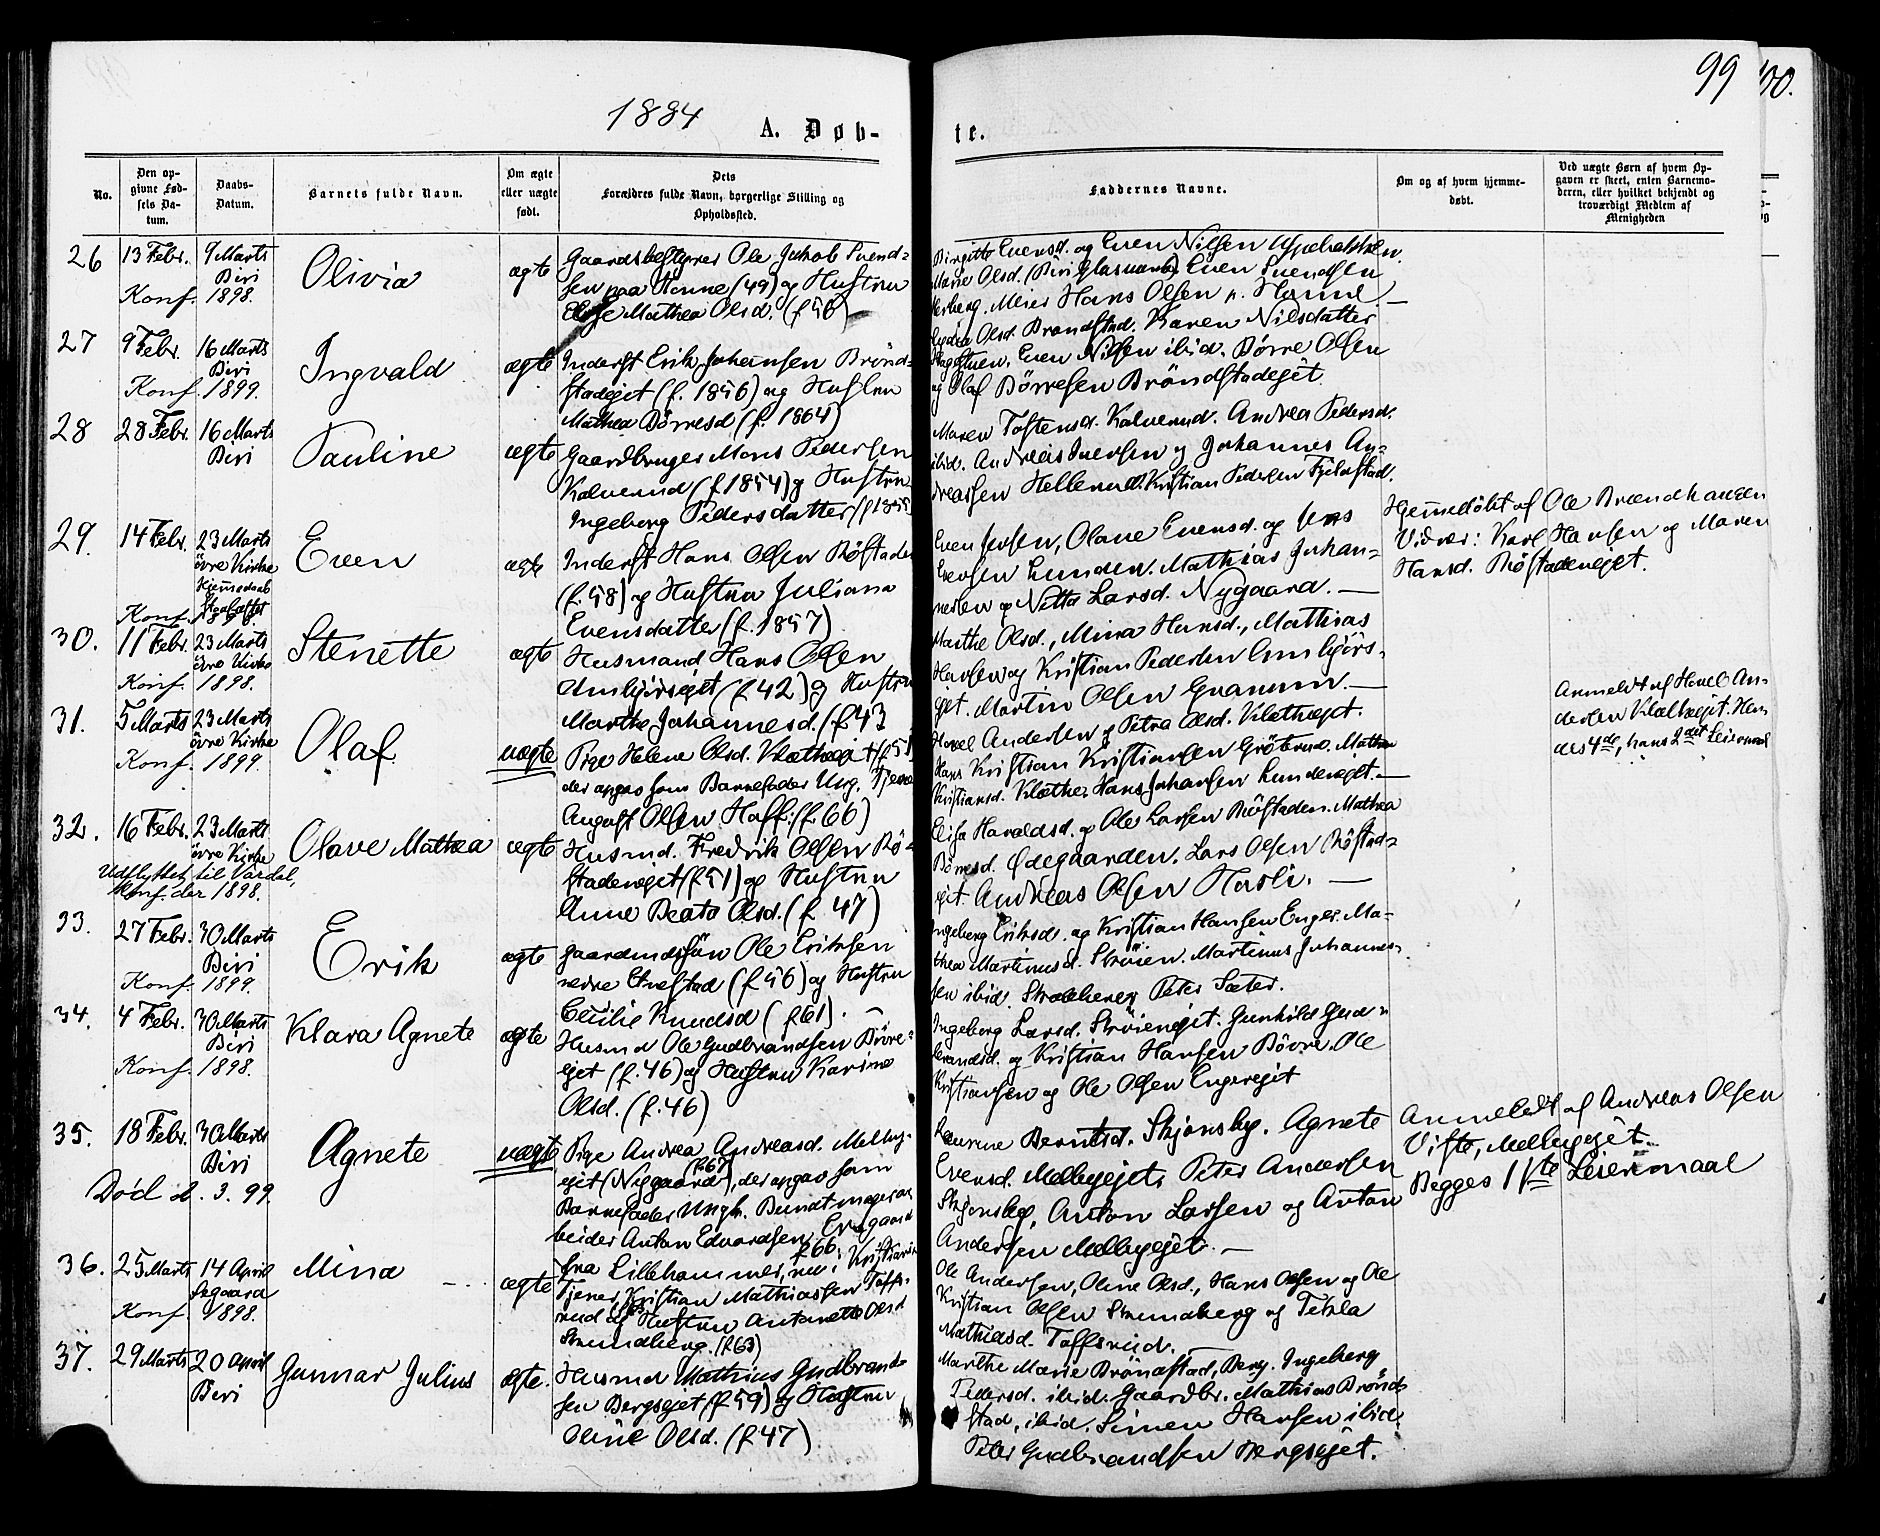 1884
A. Døb-
te.
99
100.
No.
Den op-
givne Fød-
sels Da-
tum.
Daabs-
Datum.
Barnets fulde Navn.
Om ægte
eller uægte
født.
Dets
Forældres fulde Navn, borgerlige Stilling og
Opholdssted.
Faddernes Navne.
Om og af hvem hjemme-
døbt.
Ved uægte Børn af hvem Op-
gaven er skeet, enten Barnemo-
deren, eller hvilket bekjendt og
troværdigt Medlem af
Menigheden
26
13 Febr.
9 Marts
Biri
Konf. 1898.
Olivia
ægte
Gaardsbestyrer Ole Jakob Svend-
sen paa Honne (49) og Hustru
Mathea Olsd. (f 56)
Birgitte Evensd. og Even Nilsen
Marie Olsd. (Biri Glasværk) Even Svendsen
Meier Hans Olsen p. Honne.
27
9 Febr.
16 Marts
Biri
Konf. 1899.
Ingvald
ægte
Inderst Erik Johansen Brönd-
stadejet (f. 1856) og Hustru
Mathea Börresd (f. 1864)
Olsd. Brøndstad. Karen Nilsdatter
Even Nilsen ibid. Börre Olsen
og Olaf Börresen Bröndstadejet.
28
28 Febr.
16 Marts
Biri
Pauline
ægte
Gaardbruger Mons Pedersen
Kalverud (f 1854) og Hustru
Ingeborg Pedersdatter (f 1855)
Maren Tostensd. Kalverud. Andrea Pedersd.
ibid. Andreas Iversen og Johannes An-
dreassen Hellerud. Kristian Pedersen Fjelstad.
29.
14 Febr.
23 Marts
övre Kirke
Hjemmedaab
Stadfæstet
Konf. 1898.
Even
ægte
Inderst Hans Olsen Röstaden
(f. 58) og Hustru Juliana
Evensdatter (f. 1857)
Even Jensen, Olave Evensd. og Jens
Evensen Lunden. Mathias Johan-
nesen og Larsd. Nygaard.
Hjemmedöbt af Ole Brændhaugen
Vidner: Karl Hansen og Maren
Hansd. Röstadenejet.
30.
11 Febr.
23 Marts
övre Kirke
Konf. 1898.
Stenette
ægte
Husmand Hans Olsen
(f 42) og Hustru
Marthe Johannesd. (f 43
Marthe Olsd., Mina Hansd., Mathias
Hansen og Kristian Pedersen
ejet. Martin Olsen Granum.
31.
5 Marts
23 Marts
övre Kirke
Konf. 1899.
Olaf
uægte
Pige Helene Olsd. Klæthejet (f 51
der opgav som Barnefader Ung. Tjener
August Olsen Hoff. (f. 66)
Hovel Andersen og Petra Olsd. Klæthejet.
Hans Kristian Kristiansen Gröterud. Mathea
Kristiansd. Klæthe. Hans Johansen Lundenejet.
Anmeldt af Hovel An-
dersen Klæthejet. Hen
des 4de, hans 2det Leiermaal
32.
16 Febr.
23 Marts
övre Kirke
Udflyttet til Vardal,
Konf. der 1898.
Olave Mathea
ægte
Husmd. Fredrik Olsen Rö-
stadenejet (f 51) og Hustru
Anne Beate Olsd. (f. 47)
Elise Haraldsd. og Ole Larsen Röstaden. Mathea
Börresd. Ödegaarden. Lars Olsen Röstad-
ejet. Andreas Olsen Hasli.
33.
27 Febr.
30 Marts
Biri
Konf. 1899.
Erik
ægte
Gaardmdsön Ole Eriksen
nedre (f 56) og Hustru
Cecilie Knudsd (f 61).
Ingeborg Eriksd. og Kristian Hansen Enger. Ma-
thea Martinusd. Ströien. Martinus Johannes-
sen ibid. Peter Sæter.
34.
4 Febr.
30 Marts
Biri
Konf. 1898.
Klara Agnete
ægte
Husmd Ole Gudbrandsen Bövre-
ejet (f. 46) og Hustru Karine
Olsd. (f. 46)
Ingeborg Larsd. Ströienejet. Gunhild Gud-
brandsd. og Kristian Hansen Bövre. Ole
Kristiansen og Ole Olsen Engerejet
35.
18 Febr.
30 Marts
Biri
Död d. . 3. 99.
Agnete
uægte
Pige Andrea Andreasd. Melby-
ejet (Nygaard) (f. 67), der opgav som
Barnefader Ungk. Buntmagerar
beider Anton Edvardsen
f. 66.
fra Lillehammer, nu i Kristiania
Laurine Berntsd. Skjönsby. Agnete
Evensd. Melbyejet, Peter Andersen
Skjönsby, Anton Larsen og Anton
Andersen Melbyejet.
Anmeldt af Andreas Olsen
Vifte, Melbyejet.
Begges 1ste Leiermaal
36.
25 Marts
14 April
Konf. 1898.
Mina
ægte
Tjener Kristian Mathiassen Toffs-
rud og Hustru Antonette Olsd
Strandberg. (f 63)
Ole Andersen, Oline Olsd., Hans Olsen og Ole
Kristian Olsen Strandberg og Tekla
Mathiasd. Toffsrud.
37.
29 Marts
20 April
Biri
Gunnar Julius
ægte.
Husmd Mathias Gudbrand-
sen Bergsejet (f 59) og Hustru
Oline Olsd. (f 47)
Marthe Marie Bröndstad, Ingeborg
Pedersd. ibid. Gaardbr. Mathias Brönd-
stad, ibid. Simen Hansen ibid.
Peter Gudbrandsen Bergsejet.